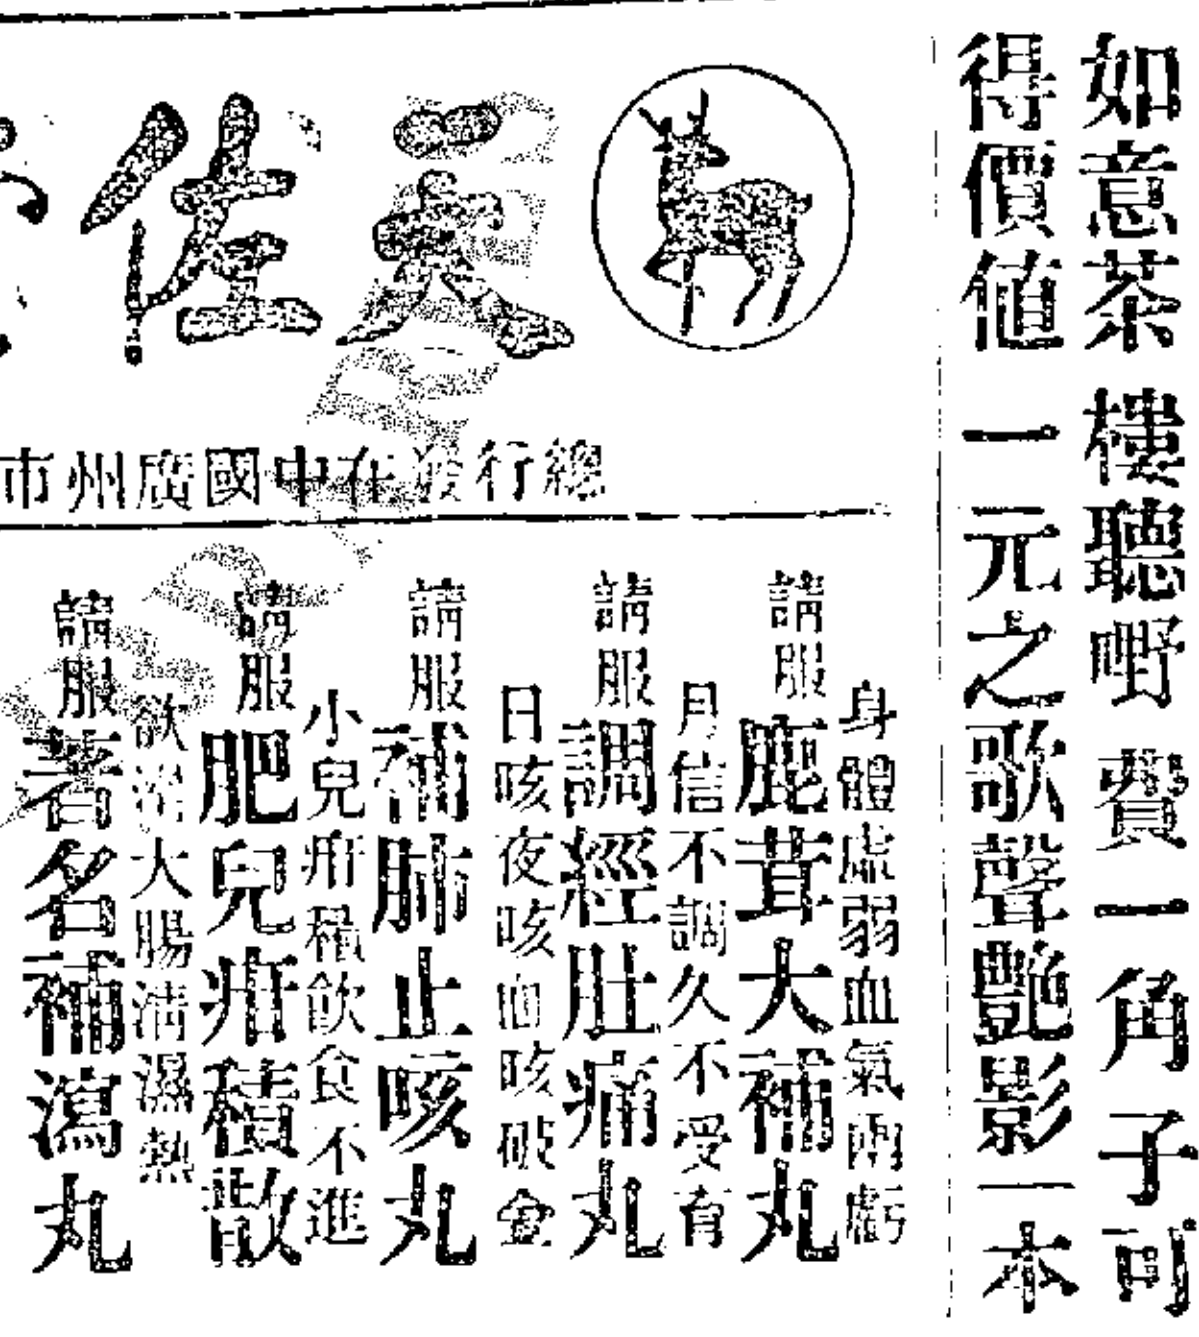 如意茶樓聽嘢費一角子可
得價值一元之歌聲艷影一本
天佐
總行設在中國廣州市
身體虛弱血氣兩虧
請服鹿茸大補丸
月信不調久不受育
請服調經肚痛丸
日咳夜咳血咳破金
請服補肺止咳丸
小兒疳積飲食不進
請服肥兒疳積散
欲治大腸清濕熱
請服著名補瀉丸